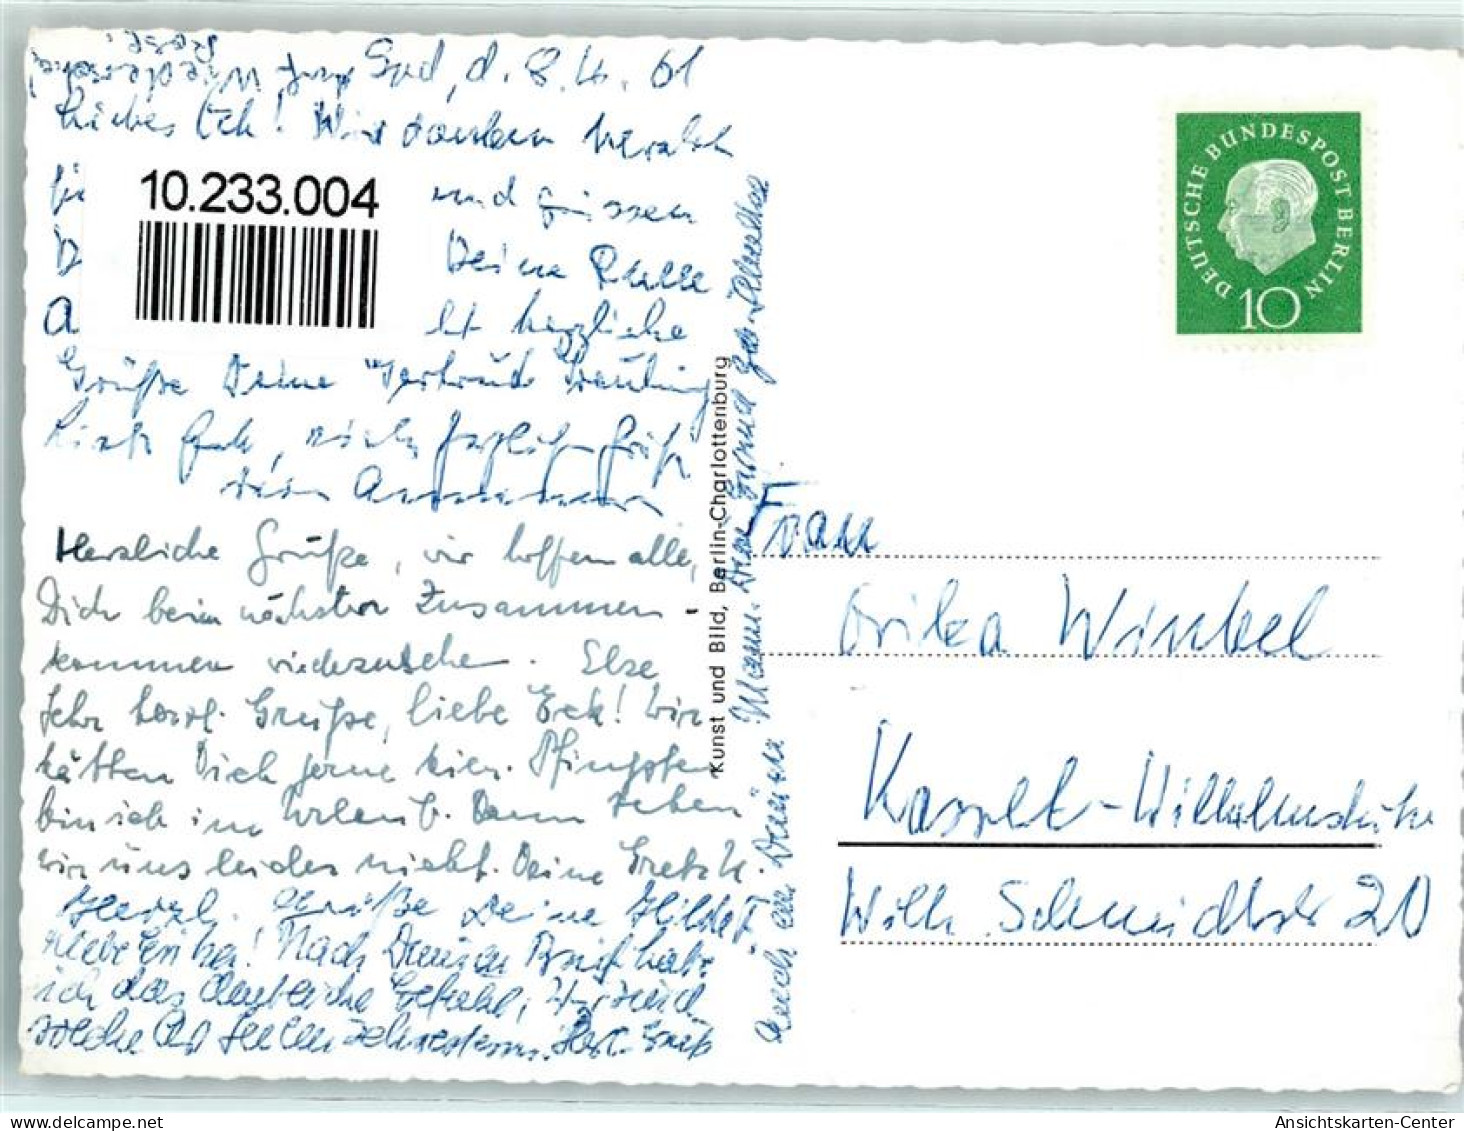 Spd, d. 8.4.61
Liebes Eck! Wir danken herzlich
für und grüssen
D Deine Rulle
A herzliche
Grüße Deine Gertrud
Dein Annemarie
Herzliche Grüße, wir hoffen alle,
Dich beim nächsten Zusammen-
kommen wiederzusehen. Else
Sehr herzl. Grüße, liebe Eck! Wir
hätten Dich gerne hier. Pfingsten
bin ich im Urlaub. Dann sehen
wir uns leider nicht. Deine Gretch.
Herzl. Grüße Deine Hilde
Liebe Erika! Nach Deinem Brief habe
ich das deutliche Gefühl, wir sind
solche Seelenschwestern. Herzl. Gruß
10.233.004
Kunst und Bild, Berlin-Charlottenburg
DEUTSCHE BUNDESPOST BERLIN
10
Frau
Erika Winkel
Kassel-Wilhelmshöhe
Wilh. Schmidtstr 20
10233004
Ansichtskarten-Center